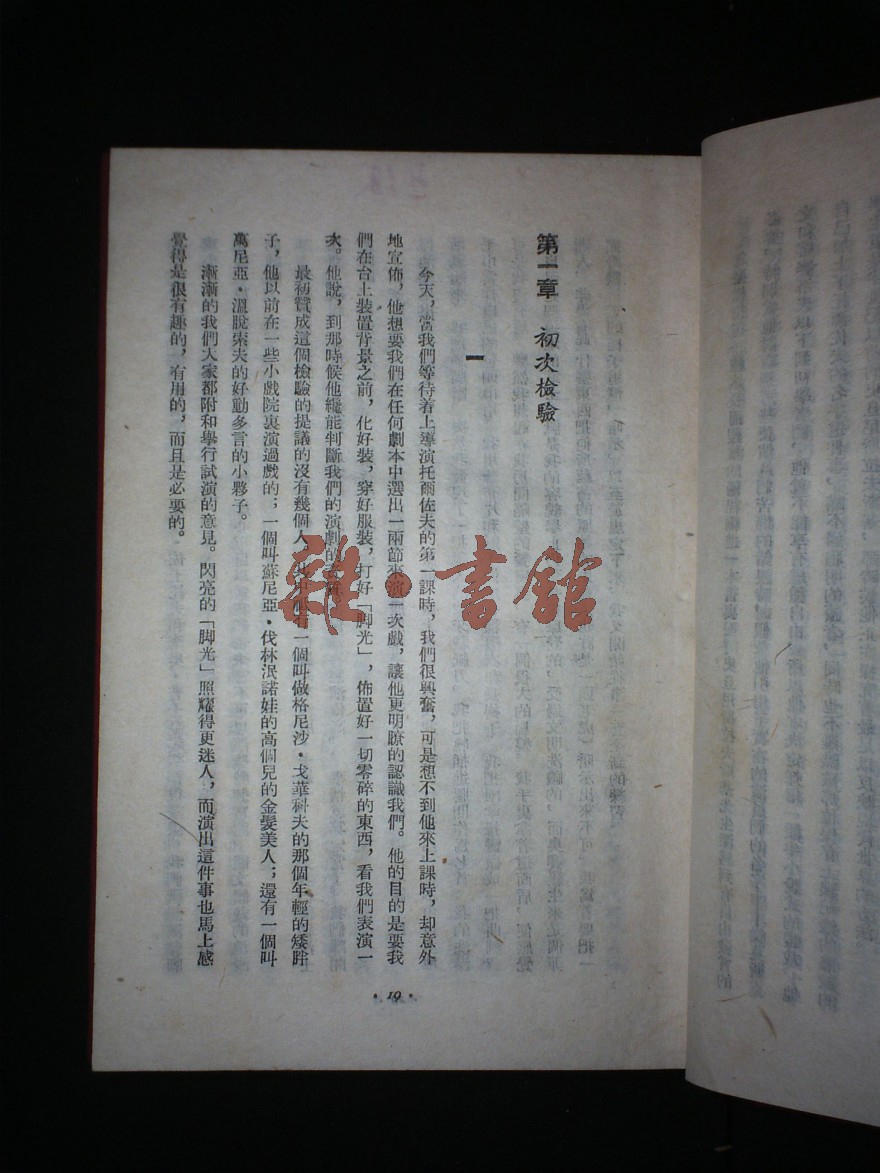 第一章　初次檢驗
一
今天，當我們等待着上導演托爾佐夫的第一課時，我們很興奮，可是想不到他來上課時，却意外
地宣佈，他想要我們在任何劇本中選出一兩節來演一次戲，讓他更明瞭的認識我們。他的目的是要我
們在台上裝置背景之前，化好裝，穿好服裝，打好「脚光」，佈置好一切零碎的東西，看我們表演一
次。他說，到那時候他纔能判斷我們的演劇的
最初贊成這個檢驗的提議的沒有幾個人，其中有一個叫做格尼沙·戈華科夫的那個年輕的矮胖
子，他以前在一些小戲院裏演過戲的；一個叫蘇尼亞·伐林泯諾娃的高個兒的金髮美人；還有一個叫
萬尼亞·溫脫索夫的好動多言的小夥子。
漸漸的我們大家都附和舉行試演的意見。閃亮的「脚光」照耀得更迷人，而演出這件事也馬上感
覺得是很有趣的，有用的，而且是必要的。
·19·
雜·書館